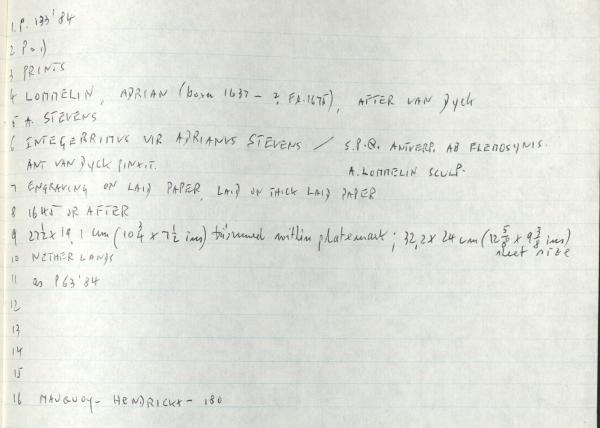 1. P. 133'84
2 P=1)
3 PRINTS
4 LOMMELIN, ADRIAN (born 1637 - ?. Fl. 1675), AFTER VAN DYCK
5 A. STEVENS
6 INTEGERRIMUS VIR ADRIANUS STEVENS / S.P.Q. ANTVERP. AB ELEMOSYNIS.
ANT VAN DYCK PINXIT. A. LOMMELIN SCULP.
7 ENGRAVING ON LAID PAPER, LAID ON THICK LAID PAPER
8 1645 OR AFTER
9 27½ x 19,1 cm (10¾ x 7½ ins) trimmed within platemark; 32,2 x 24 cm (12⅝ x 9⅜ ins)
sheet size
10 NETHERLANDS
11 as P63'84
12
13
14
15
16 MAUQUOY-HENDRICKX - 180